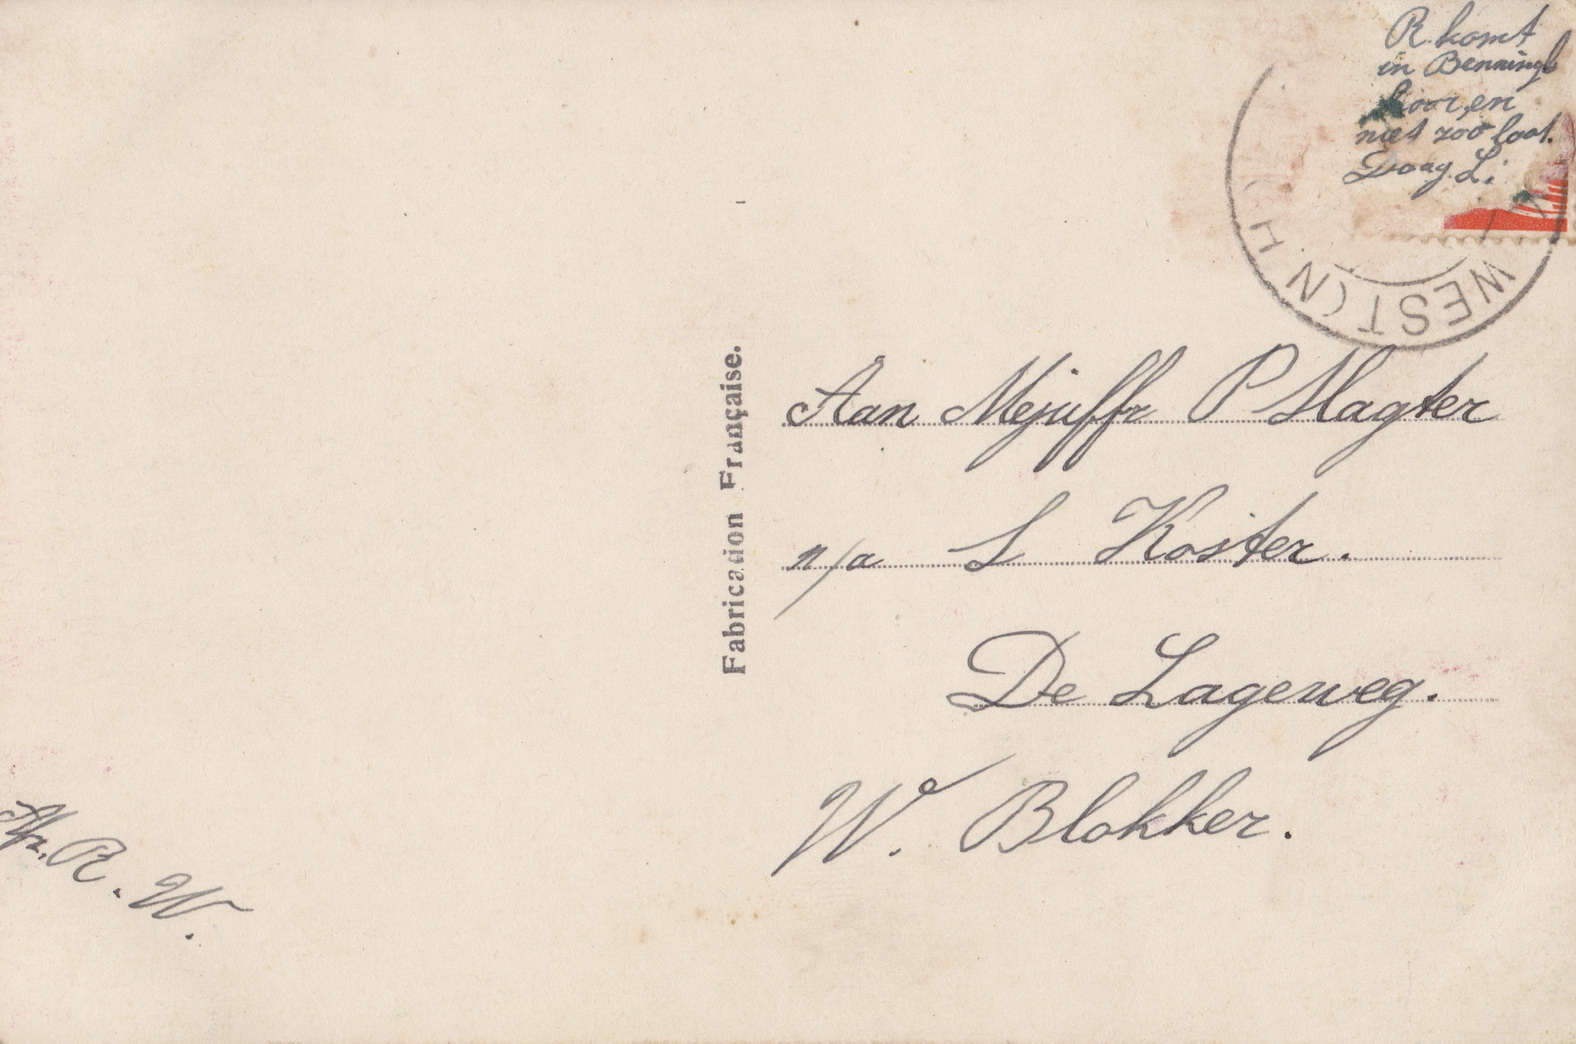 R. komt
in Benningb
hoor, en
niet zoo laat.
Daag. Li.
WEST (N H
Fabrication Française.
Aan Mejuffr P Slagter
n/a S Koster.
De Lageweg.
W. Blokker.
R. W.